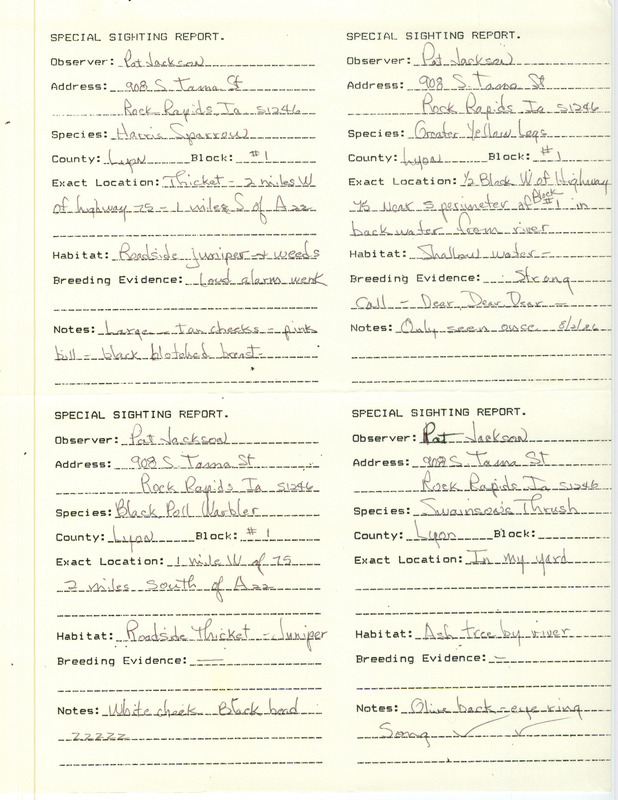 SPECIAL SIGHTING REPORT.
Observer: Pat Jackson
Address: 908 S. Tama St
Rock Rapids Ia 51246
Species: Harris Sparrow
County: Lyon Block: #1
Exact Location: Thicket - 2 miles W
of highway 75 - 1 miles S of A22
Habitat: Roadside juniper + weeds
Breeding Evidence: Loud alarm wenk
Notes: Large - tan cheeks - pink
bill - black blotched breast-
SPECIAL SIGHTING REPORT.
Observer: Pat Jackson
Address: 908 S. Tama St
Rock Rapids Ia 51246
Species: Greater Yellow Legs
County: Lyon Block: #1
Exact Location: 1/2 Block W of Highway
75 near S perimeter of Block #1 in
back water from river
Habitat: Shallow water -
Breeding Evidence: Strong
Call - Dear Dear Dear -
Notes: Only seen once 8/2/86
SPECIAL SIGHTING REPORT.
Observer: Pat Jackson
Address: 908 S. Tama St
Rock Rapids Ia 51246
Species: Black Poll Warbler
County: Lyon Block: #1
Exact Location: 1 mile W of 75
2 miles South of A22
Habitat: Roadside Thicket - Juniper
Breeding Evidence: —
Notes: White cheek Black head
zzzzz
SPECIAL SIGHTING REPORT.
Observer: Pat Jackson
Address: 908 S. Tama St
Rock Rapids Ia 51246
Species: Swainson's Thrush
County: Lyon Block:
Exact Location: In my yard
Habitat: Ash tree by river
Breeding Evidence: -
Notes: Olive back - eye ring
Song ✓ ✓